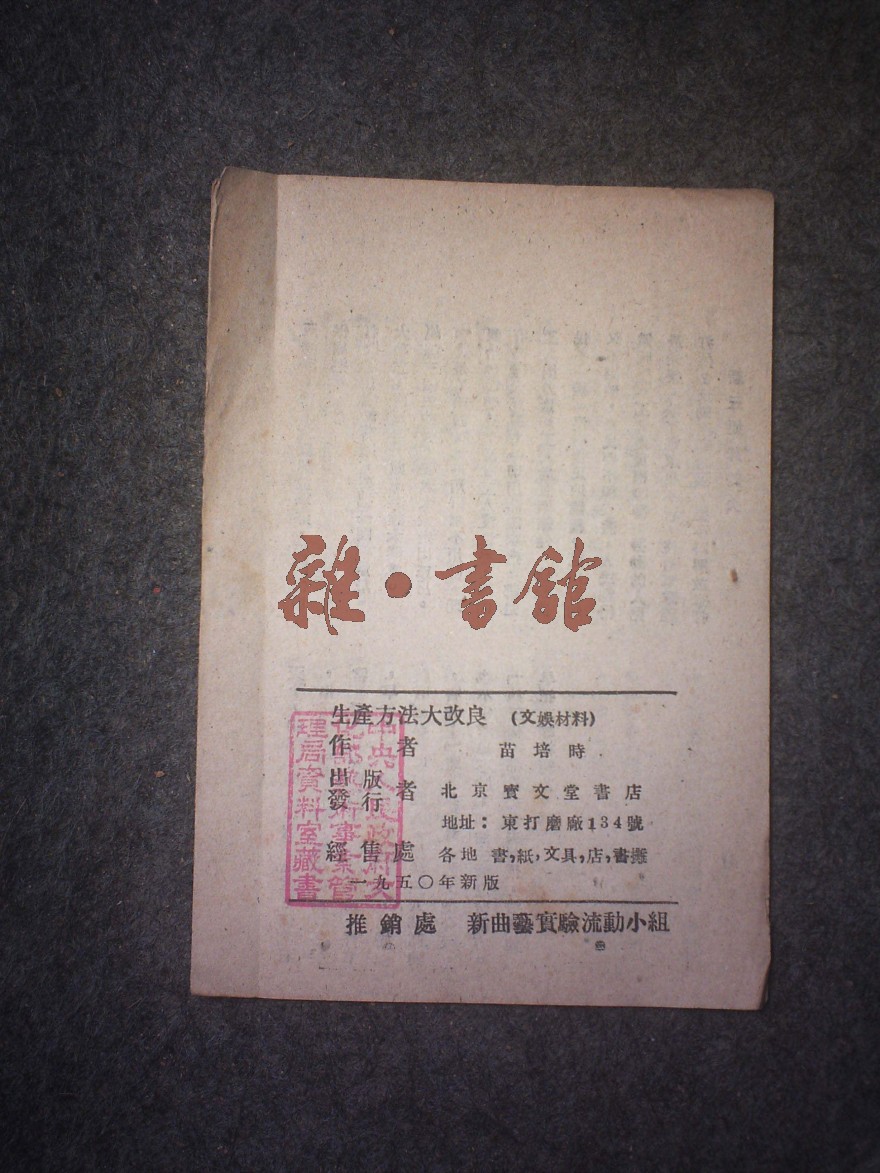 雜·書舘
生產方法大改良 (文娛材料)
作者 苗培時
出版
發行者 北京寶文堂書店
地址：東打磨廠134號
經售處 各地 書,紙,文具,店,書攤
一九五〇年新版
推銷處 新曲藝實驗流動小組
中央人民政府文
化部藝術事業管
理局資料室藏書